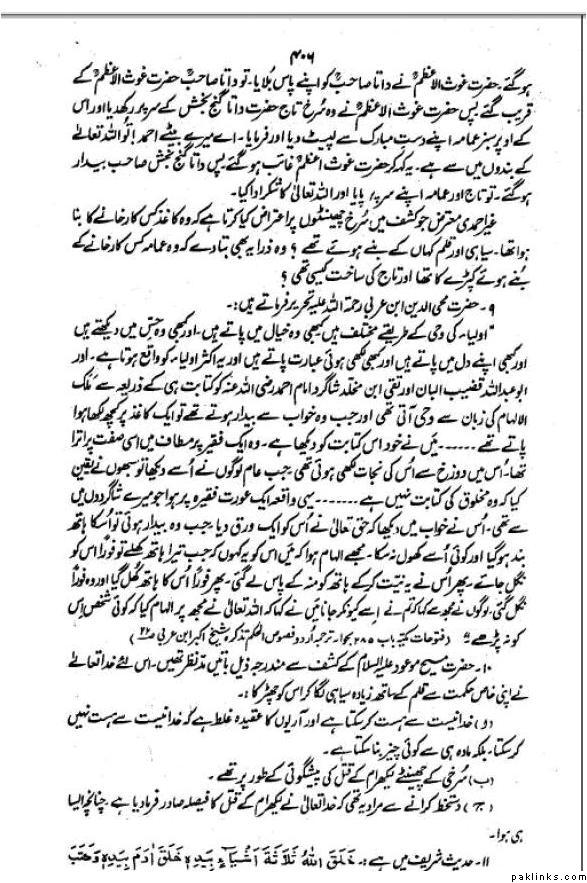 ۴۰۶
ہو گئے۔ حضرت غوث الاعظمؒ نے داتا صاحبؒ کو اپنے پاس بُلایا۔ تو داتا صاحبؒ حضرت غوث الاعظمؒ کے
قریب گئے پس حضرت غوث الاعظمؒ نے وہ سُرخ تاج حضرت داتا گنج بخش کے سر پر رکھدیا اور اس
کے اوپر سبز عمامہ اپنے دست مبارک سے لپیٹ دیا اور فرمایا۔ اے میرے بیٹے احمد! تُو اللہ تعالےٰ
کے بندوں میں سے ہے۔ یہ کہہ کر حضرت غوث اعظمؒ غائب ہو گئے پس داتا گنج بخش صاحب بیدار
ہو گئے۔ تو تاج اور عمامہ اپنے سر پر پایا اور اللہ تعالیٰ کا شکر ادا کیا۔
غیر احمدی معترض جو کشف میں سُرخ چھینٹوں پر اعتراض کیا کرتا ہے کہ وہ کاغذ کس کارخانے کا بنا
ہوا تھا۔ سیاہی اور قلم کہاں کے بنے ہوئے تھے؟ وہ ذرا یہ بھی بتا دے کہ وہ عمامہ کس کارخانے کے
بُنے ہوئے کپڑے کا تھا اور تاج کی ساخت کیسی تھی؟
۹۔ حضرت محی الدین ابن عربی رحمۃ اللہ علیہ تحریر فرماتے ہیں:۔
"اولیاء کی وحی کے طریقے مختلف ہیں کبھی وہ خیال میں پاتے ہیں۔ اور کبھی وہ حِس میں دیکھتے ہیں
اور کبھی اپنے دل میں پاتے ہیں اور کبھی لکھی ہوئی عبارت پاتے ہیں اور یہ اکثر اولیاء کو واقع ہوتا ہے۔ اور
ابو عبداللہ قضیب البان اور تقی ابن مخلد شاگرد امام احمد رضی اللہ عنہ کو کتابت ہی کے ذریعہ سے ملک
الالہام کی زبان سے وحی آتی تھی اور جب وہ خواب سے بیدار ہوتے تھے تو ایک کاغذ پر کچھ لکھا ہوا
پاتے تھے ۔۔۔۔۔۔ مَیں نے خود اس کتابت کو دیکھا ہے۔ وہ ایک فقیر پر مطاف میں اسی صفت پر اترا
تھا۔ اُس میں دوزخ سے اُس کی نجات لکھی ہوئی تھی جب عام لوگوں نے اُسے دیکھا تو سبھوں نے یقین
کیا کہ وہ مخلوق کی کتابت نہیں ہے ۔۔۔۔۔۔ یہی واقعہ ایک عورت فقیرہ پر ہوا جو میرے شاگردوں میں
سے تھی۔ اُس نے خواب میں دیکھا کہ حق تعالیٰ نے اُس کو ایک ورق دیا۔ جب وہ بیدار ہوئی تو اُسکا ہاتھ
بند ہو گیا اور کوئی اُسے کھول نہ سکا۔ مجھے الہام ہوا کہ مَیں اس کو یہ کہوں کہ جب تیرا ہاتھ کھلے تو فوراً اس کو
نگل جائے۔ پھر اُس نے یہ نیت کر کے ہاتھ کو منہ کے پاس لے گئی۔ پھر فوراً اُس کا ہاتھ کھُل گیا اور وہ فوراً
نگل گئی۔ لوگوں نے مجھ سے کہا کہ تم نے اِسے کیونکر جانا مَیں نے کہا کہ اللہ تعالیٰ نے مجھ پر الہام کیا کہ کوئی شخص اِس
کو نہ پڑھے" (فتوحات مکیہ باب ۲۸۵ بحوالہ ترجمہ اُردو فصوص الحکم تذکرہ شیخ اکبر ابن عربی)
۱۰۔ حضرت مسیح موعود علیہ السلام کے کشف سے مندرجہ ذیل باتیں مدّ نظر تھیں۔ اس لئے خدا تعالےٰ
نے اپنی خاص حکمت سے قلم کے ساتھ زیادہ سیاہی لگا کر اس کو چھڑکا:۔
(ا) خدا نیست سے ہست کر سکتا ہے اور آریوں کا عقیدہ غلط ہے کہ خدا نیست سے ہست نہیں
کر سکتا۔ بلکہ مادہ ہی سے کوئی چیز بنا سکتا ہے۔
(ب) سُرخی کے چھینٹے لیکھرام کے قتل کی پیشگوئی کے طور پر تھے۔
(ج) دستخط کرانے سے مراد یہ تھی کہ خدا تعالیٰ نے لیکھرام کے قتل کا فیصلہ صادر فرما دیا ہے چنانچہ ایسا
ہی ہوا۔
۱۱۔ حدیث شریف میں ہے:۔ خَلَقَ اللّٰهُ ثَلَاثَةَ اَشْيَآءٍ بِيَدِهٖ خَلَقَ اٰدَمَ بِيَدِهٖ وَكَتَبَ
paklinks.com